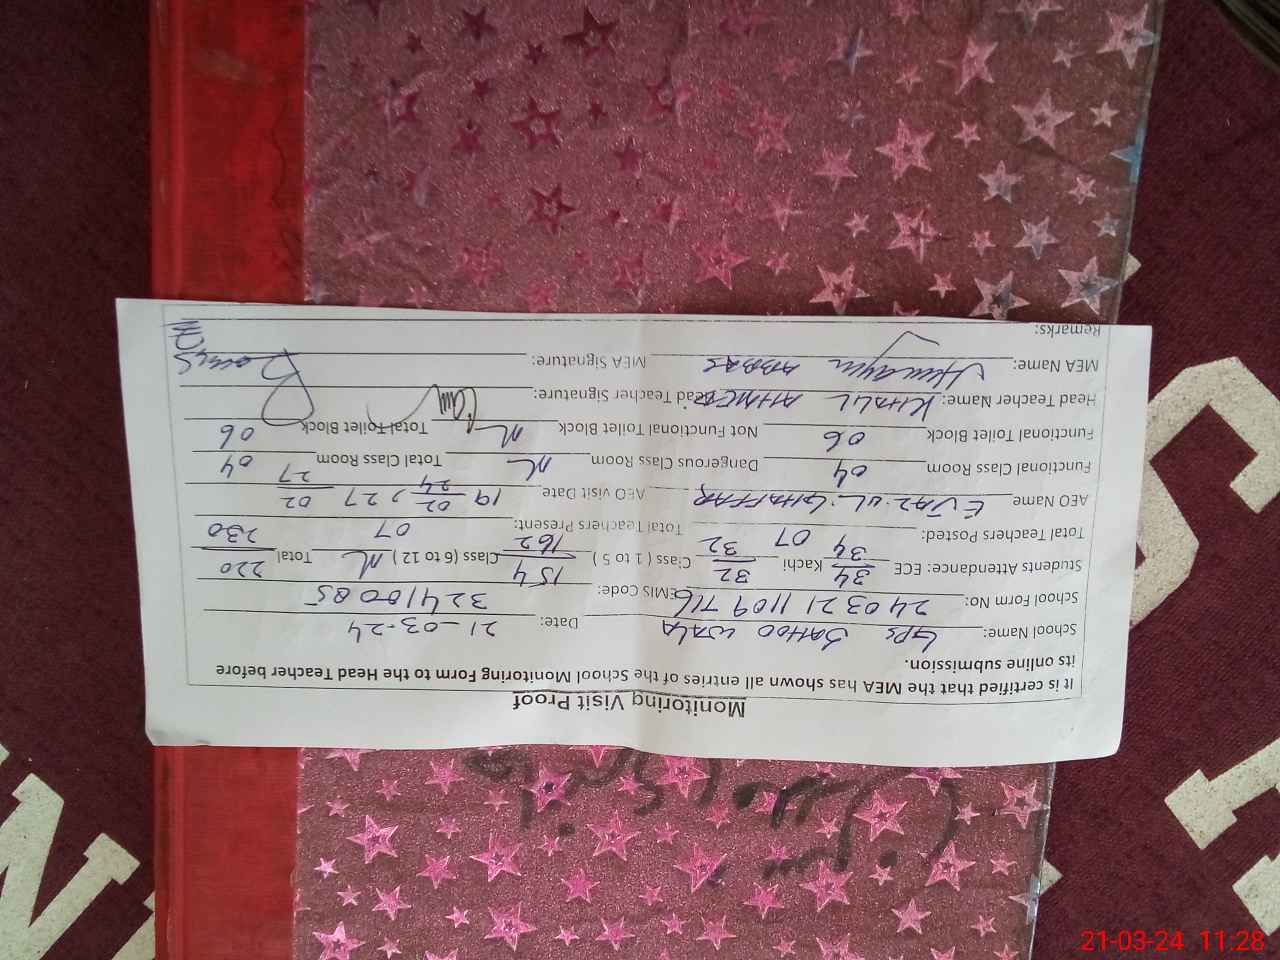 Monitoring Visit Proof
It is certified that the MEA has shown all entries of the School Monitoring Form to the Head Teacher before
its online submission.
School Name: GPS SAHOO WALA Date: 21-03-24
School Form No: 240321 1109 716 EMIS Code: 32410085
Students Attendance: ECE: 34/34 Kachi 32/32 Class ( 1 to 5 ) 154/162 Class (6 to 12) N Total 220/230
Total Teachers Posted: 07 Total Teachers Present: 07
AEO Name EJAZ-UL-GHAFFAR AEO visit Date 19/02/24, 27/02/27
Functional Class Room 04 Dangerous Class Room N Total Class Room 04
Functional Toilet Block 06 Not Functional Toilet Block N Total Toilet Block 06
Head Teacher Name: KHALIL AHMED Head Teacher Signature:
MEA Name: Humayun ABBAS MEA Signature:
Remarks:
21-03-24 11:28